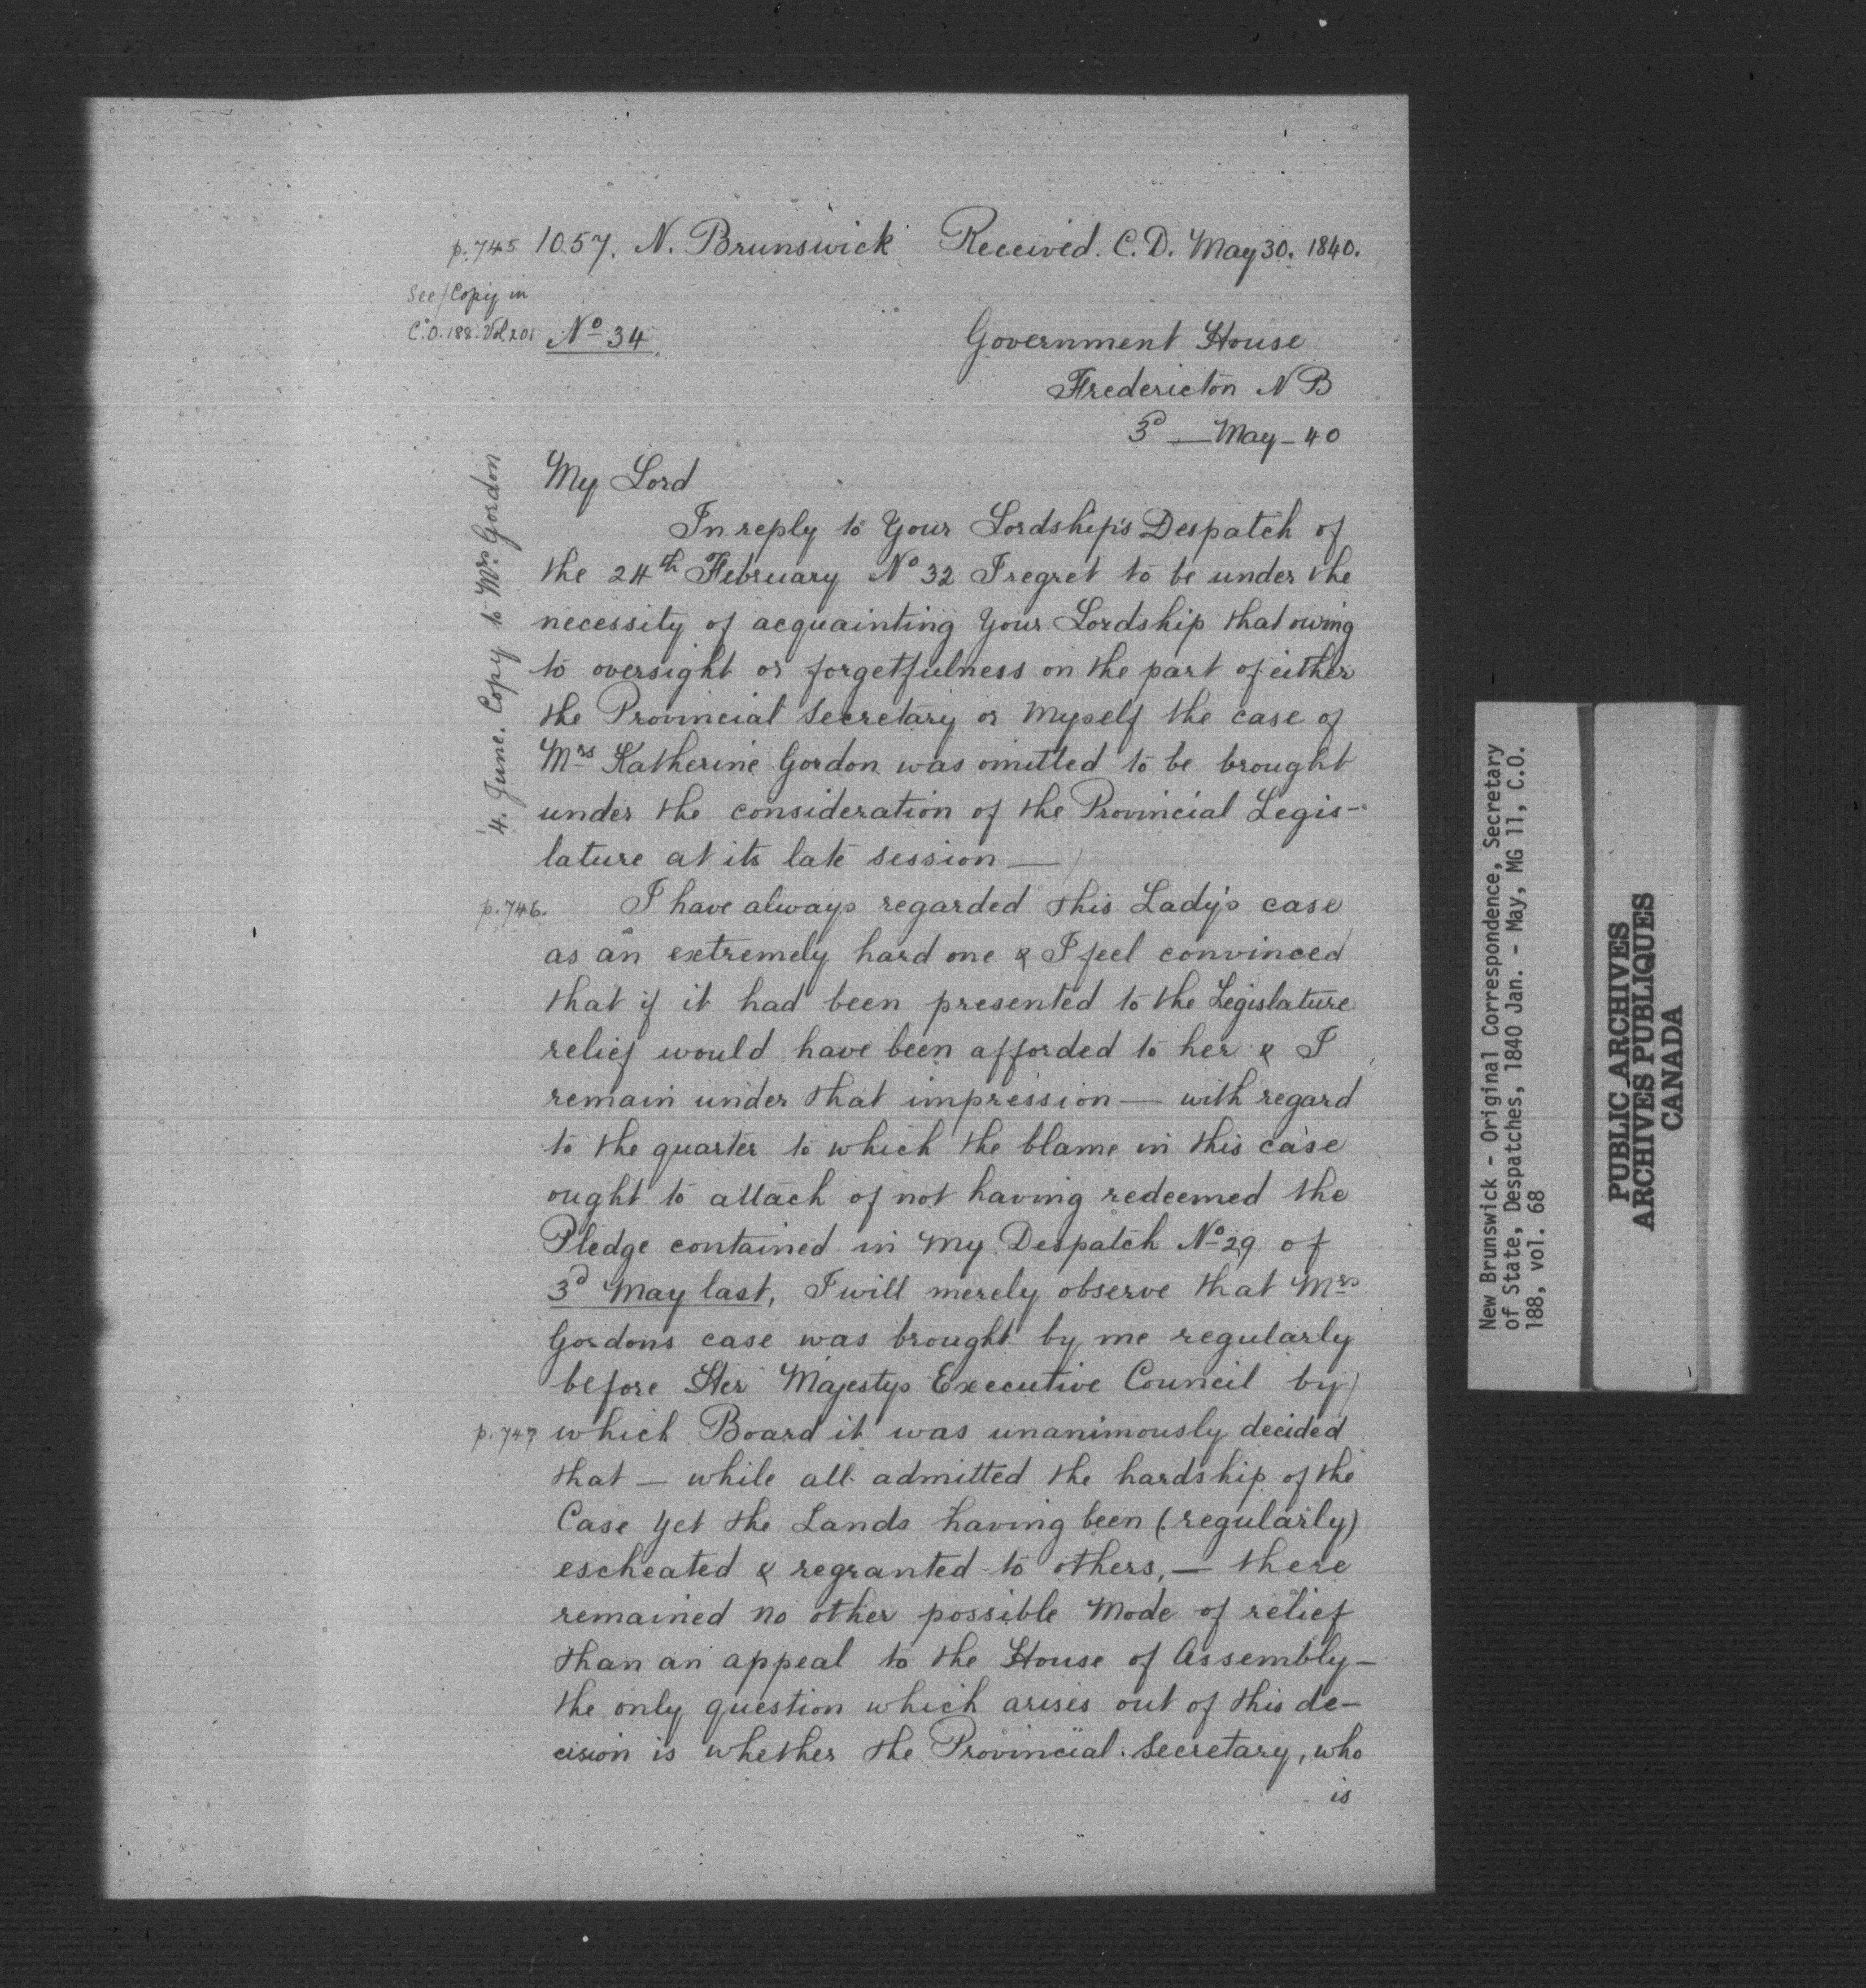 p. 745 1057. N. Brunswick Received. C. D. May 30. 1840.
See/Copy in
C.O. 188. Vol. 201 No 34.
Government House
Fredericton N B
3d — May — 40
4. June. Copy to Mrs Gordon
My Lord
In reply to Your Lordship's Despatch of
the 24th February No 32 I regret to be under the
necessity of acquainting Your Lordship that owing
to oversight or forgetfulness on the part of either
the Provincial Secretary or Myself the case of
Mrs Katherine Gordon was omitted to be brought
under the consideration of the Provincial Legis-
lature at its late session — /
p. 746. I have always regarded this Lady's case
as an extremely hard one & I feel convinced
that if it had been presented to the Legislature
relief would have been afforded to her & I
remain under that impression — with regard
to the quarter to which the blame in this case
ought to attach of not having redeemed the
Pledge contained in My Despatch No 29 of
3d May last, I will merely observe that Mrs
Gordons case was brought by me regularly
before Her Majestys Executive Council by/
p. 747 which Board it was unanimously decided
that — while all admitted the hardship of the
Case yet the Lands having been (regularly)
escheated & regranted to others, — there
remained no other possible Mode of relief
than an appeal to the House of Assembly —
the only question which arises out of this de-
cision is whether the Provincial Secretary, who
is
New Brunswick - Original Correspondence, Secretary
of State, Despatches, 1840 Jan. - May, MG 11, C.O.
188, vol. 68
PUBLIC ARCHIVES
ARCHIVES PUBLIQUES
CANADA